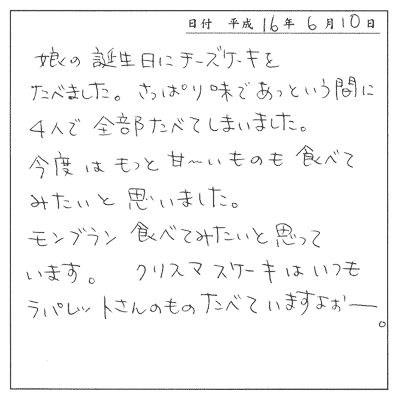 日付 平成 16年 6月 10日
娘の 誕生日に チーズケーキを
たべました。さっぱり味であっという間に
4人で 全部たべてしまいました。
今度は もっと 甘〜いものも 食べて
みたいと 思いました。
モンブラン 食べてみたいと思って
います。 クリスマスケーキは いつも
ラパレットさんのもの たべていますよぉー
。